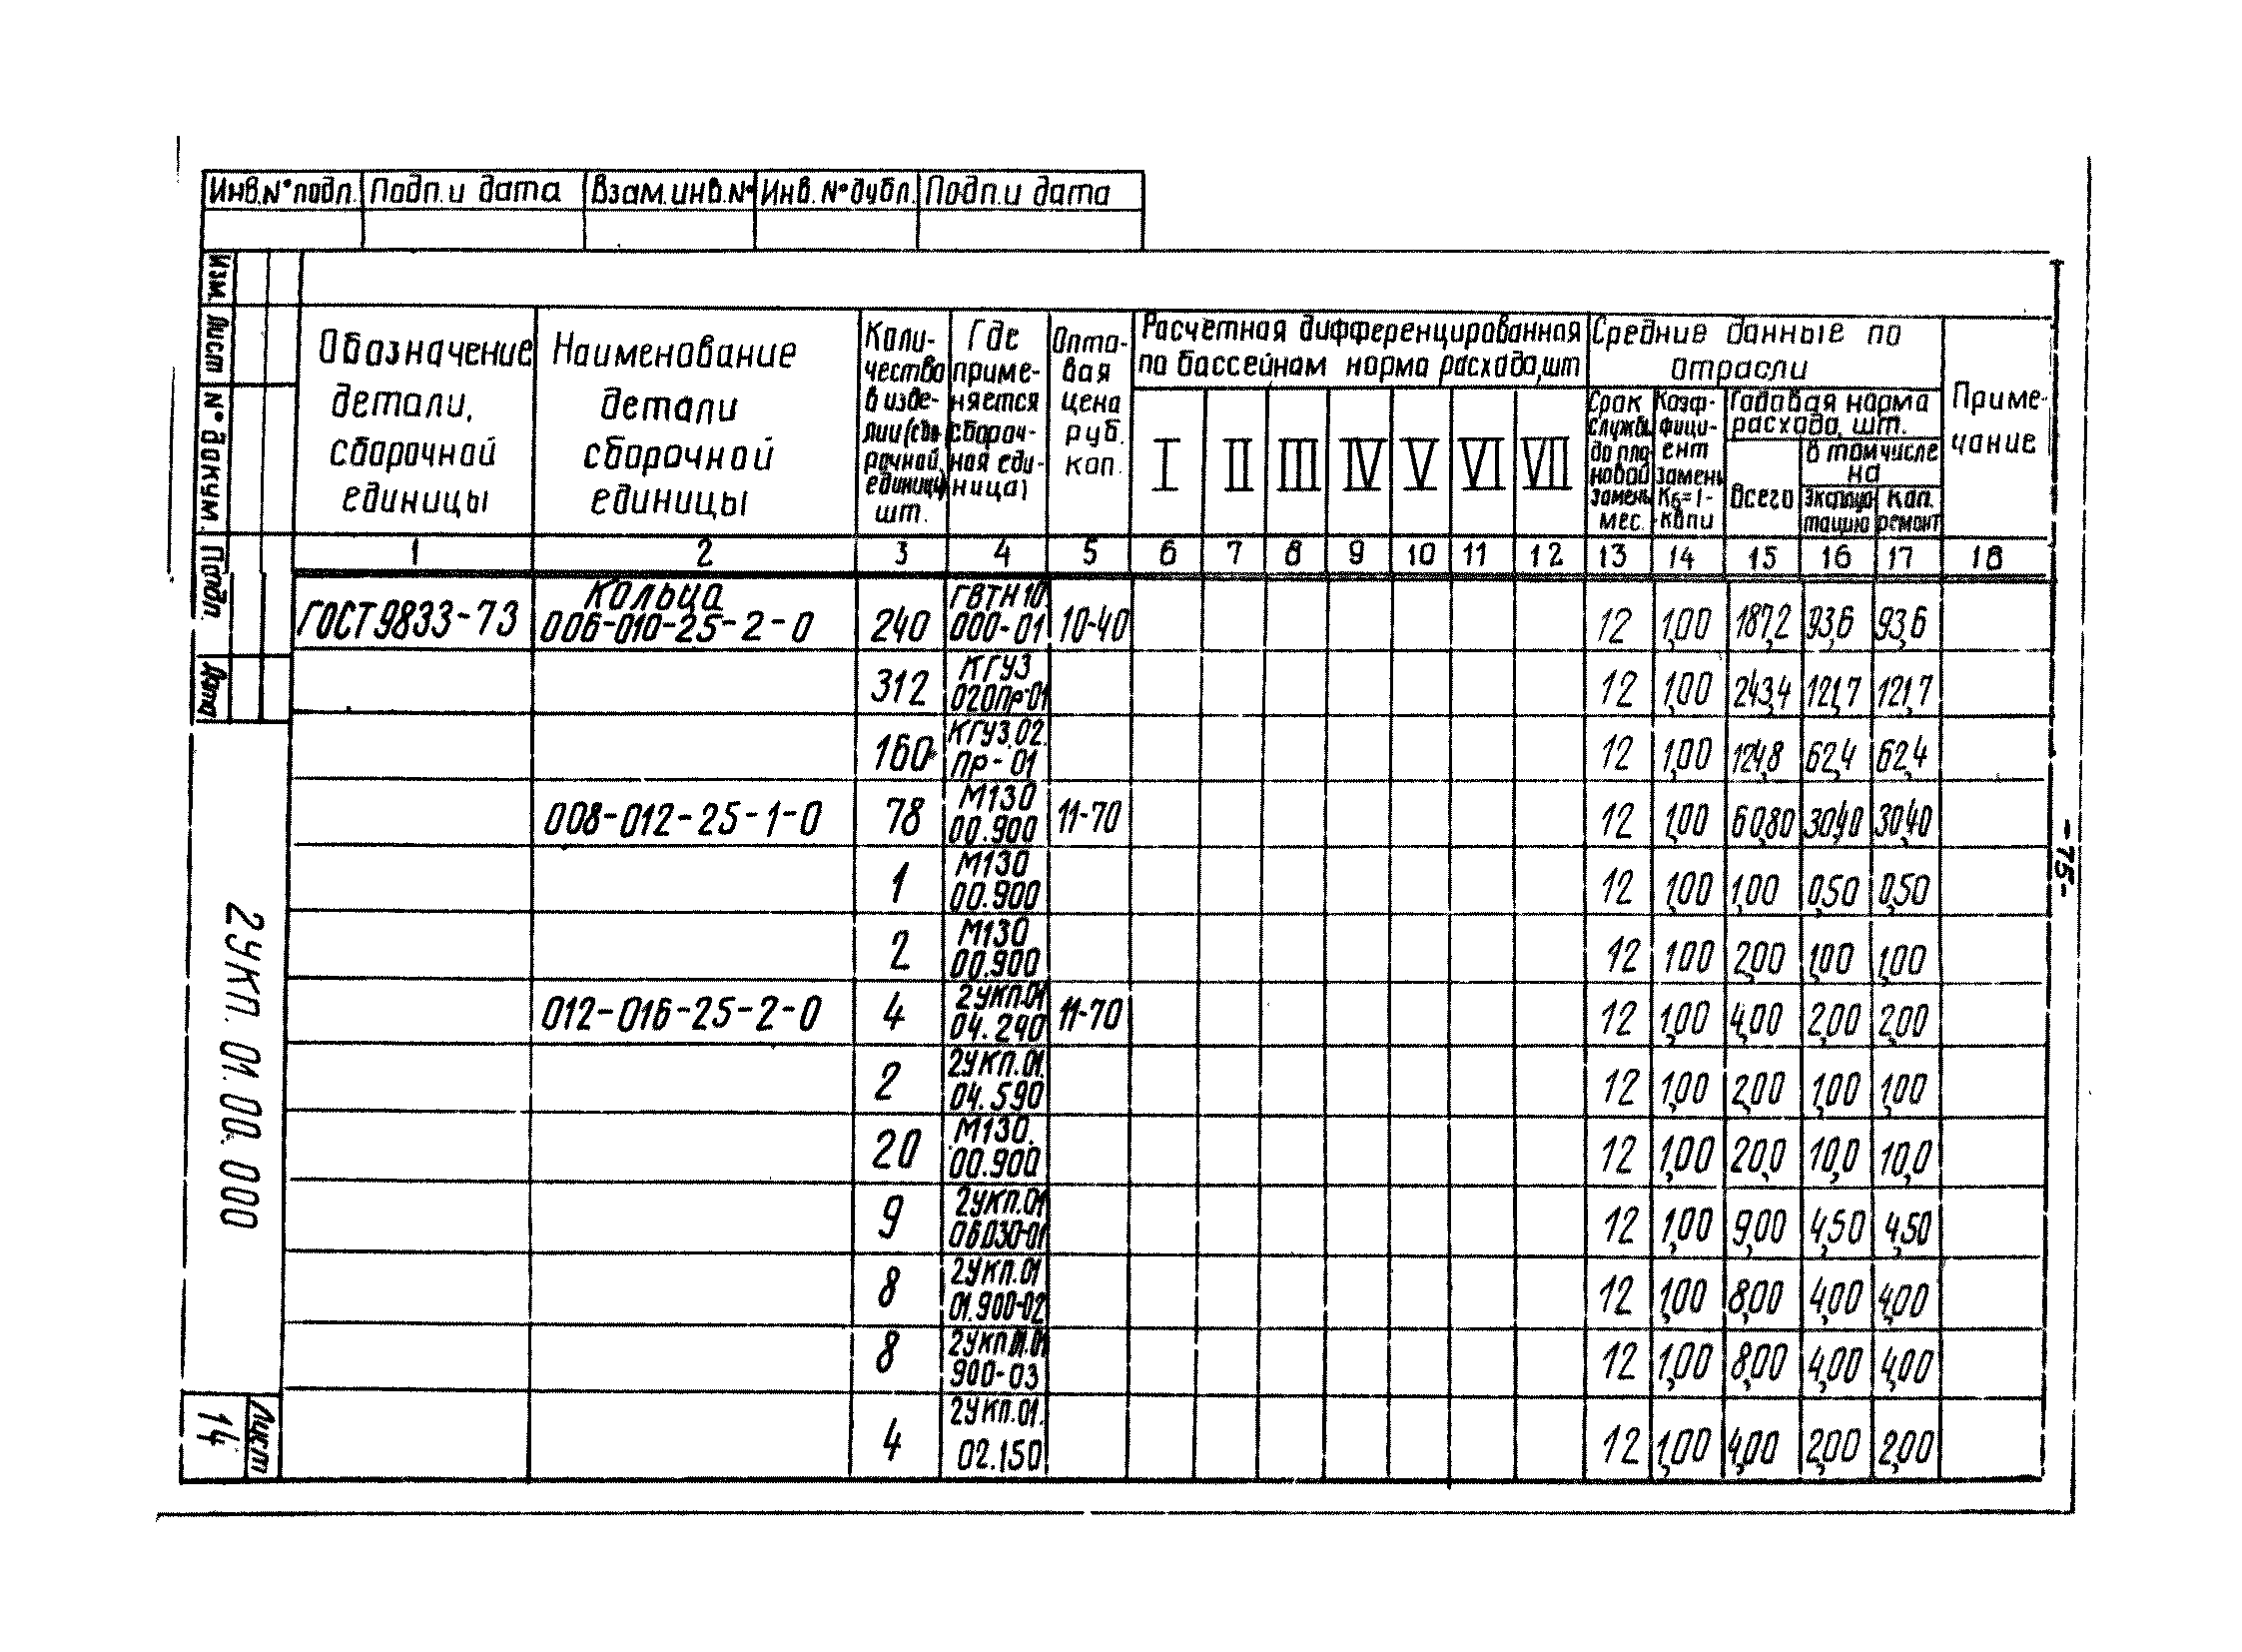 Инв.№ подл. Подп. и дата Взам.инв.№ Инв.№ дубл. Подп. и дата
Изм. Лист № докум. Подп. Дата
Обозначение детали, сборочной единицы
Наименование детали сборочной единицы
Количество в изделии (сборочной единицы) шт.
Где применяется сборочная единица)
Оптовая цена руб. коп.
Расчетная дифференцированная
по бассейнам норма расхода, шт
I II III IV V VI VII
Средние данные по
отрасли
Срок службы до плановой замены мес.
Коэффициент замены Kб=1-Kвпи
Годовая норма расхода, шт.
Всего
в том числе на
эксплуатацию
кап. ремонт
Примечание
1 2 3 4 5 6 7 8 9 10 11 12 13 14 15 16 17 18
ГОСТ 9833-73 Кольца 006-010-25-2-0 240 ГВТН10. 000-01 10-40 12 1,00 187,2 93,6 93,6
312 КГУ3 020Пр-01 12 1,00 243,4 121,7 121,7
160 КГУ3.02. Пр-01 12 1,00 124,8 62,4 62,4
008-012-25-1-0 78 М130 00.900 11-70 12 1,00 60,80 30,40 30,40
1 М130 00.900 12 1,00 1,00 0,50 0,50
2 М130 00.900 12 1,00 2,00 1,00 1,00
012-016-25-2-0 4 2УКП.01 04.240 11-70 12 1,00 4,00 2,00 2,00
2 2УКП.01. 04.590 12 1,00 2,00 1,00 1,00
20 М130. 00.900 12 1,00 20,0 10,0 10,0
9 2УКП.01 06.030-01 12 1,00 9,00 4,50 4,50
8 2УКП.01 01.900-02 12 1,00 8,00 4,00 4,00
8 2УКП.01.01 900-03 12 1,00 8,00 4,00 4,00
4 2УКП.01. 02.150 12 1,00 4,00 2,00 2,00
2УКП.01.00.000
Лист
14
-75-